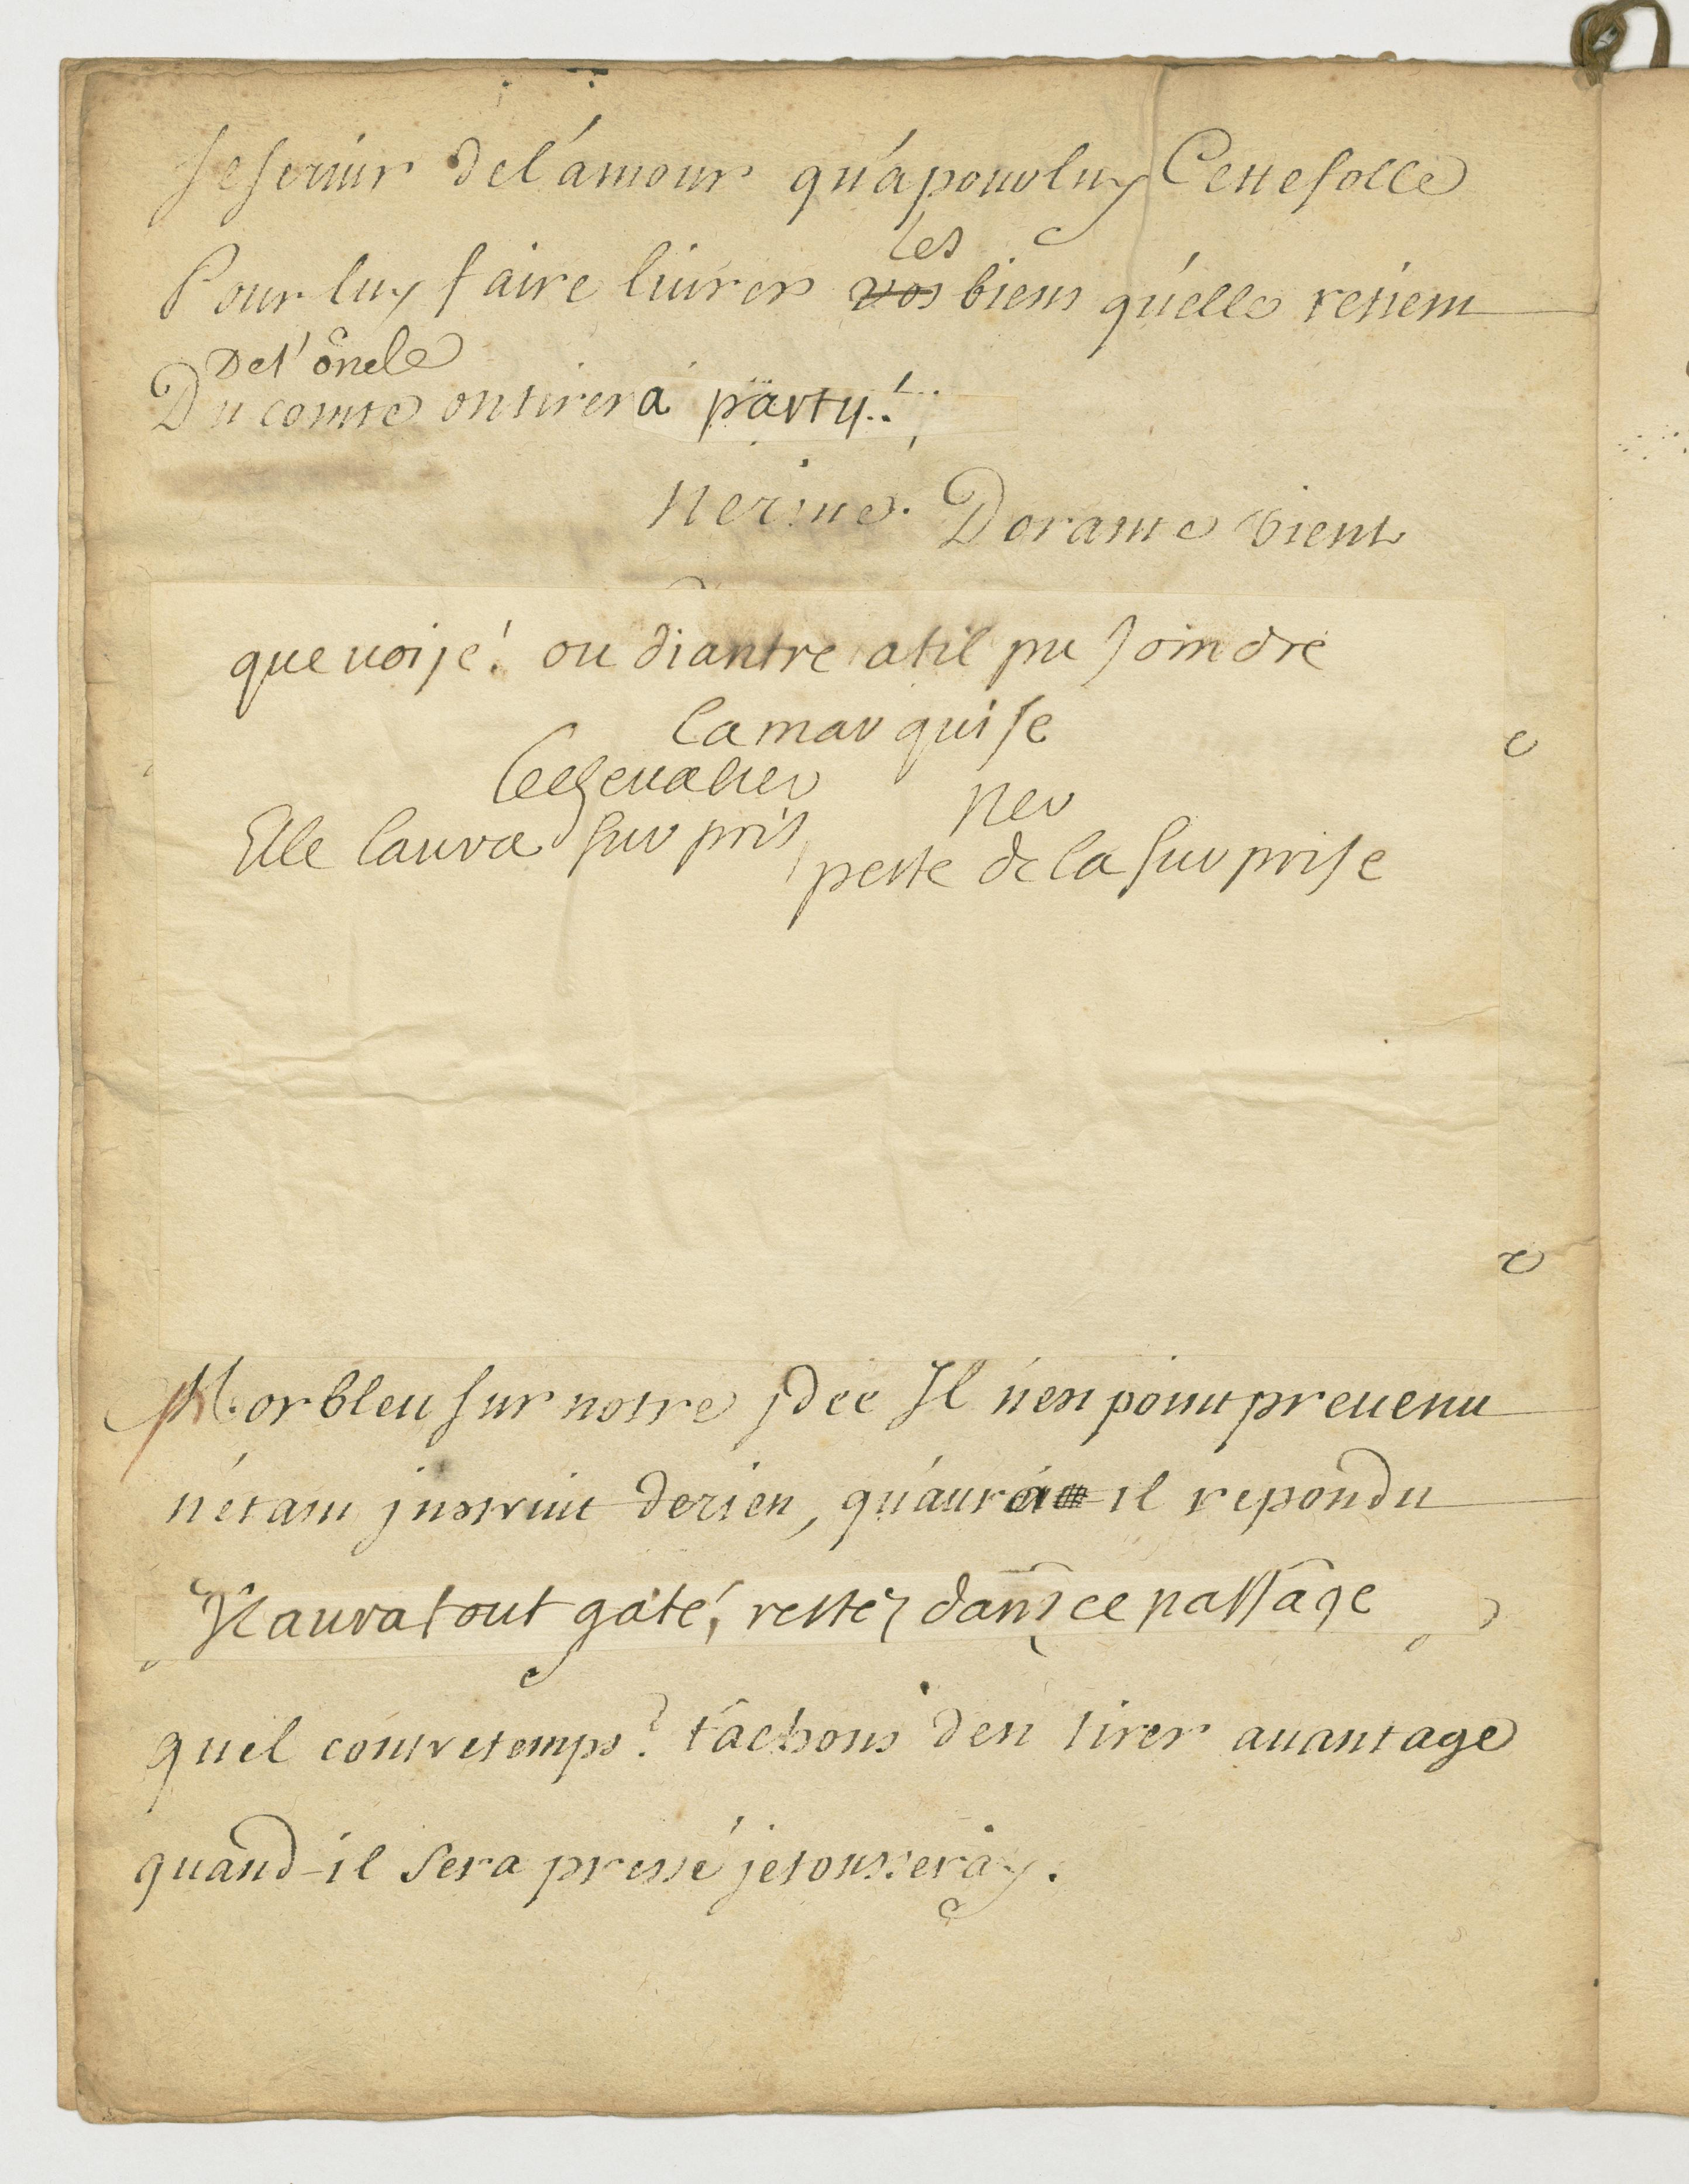 Se seruir de l'amour qu'a pour luy Cette folle
les
Pour luy faire liurer vos biens qu'elle retient
De l'oncle
Du comte on tirera party!
Nerine. Dorante vient
que voi je! ou diantre atil pu Joindre
la marquise
Le chevalier
Ner
Elle laura surpris,
peste de la surprise
Morbleu sur notre jdée Il n'est point preuenu
n'étant jnstruit de rien, qu'aura il repondu
Il aura tout gaté, restez dans ce passage
quel contretemps? tâchons d'en tirer auantage
quand-il sera pressé je tousseray.